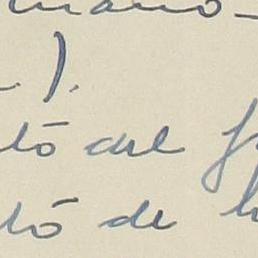 mano-
).
tó del
tó de